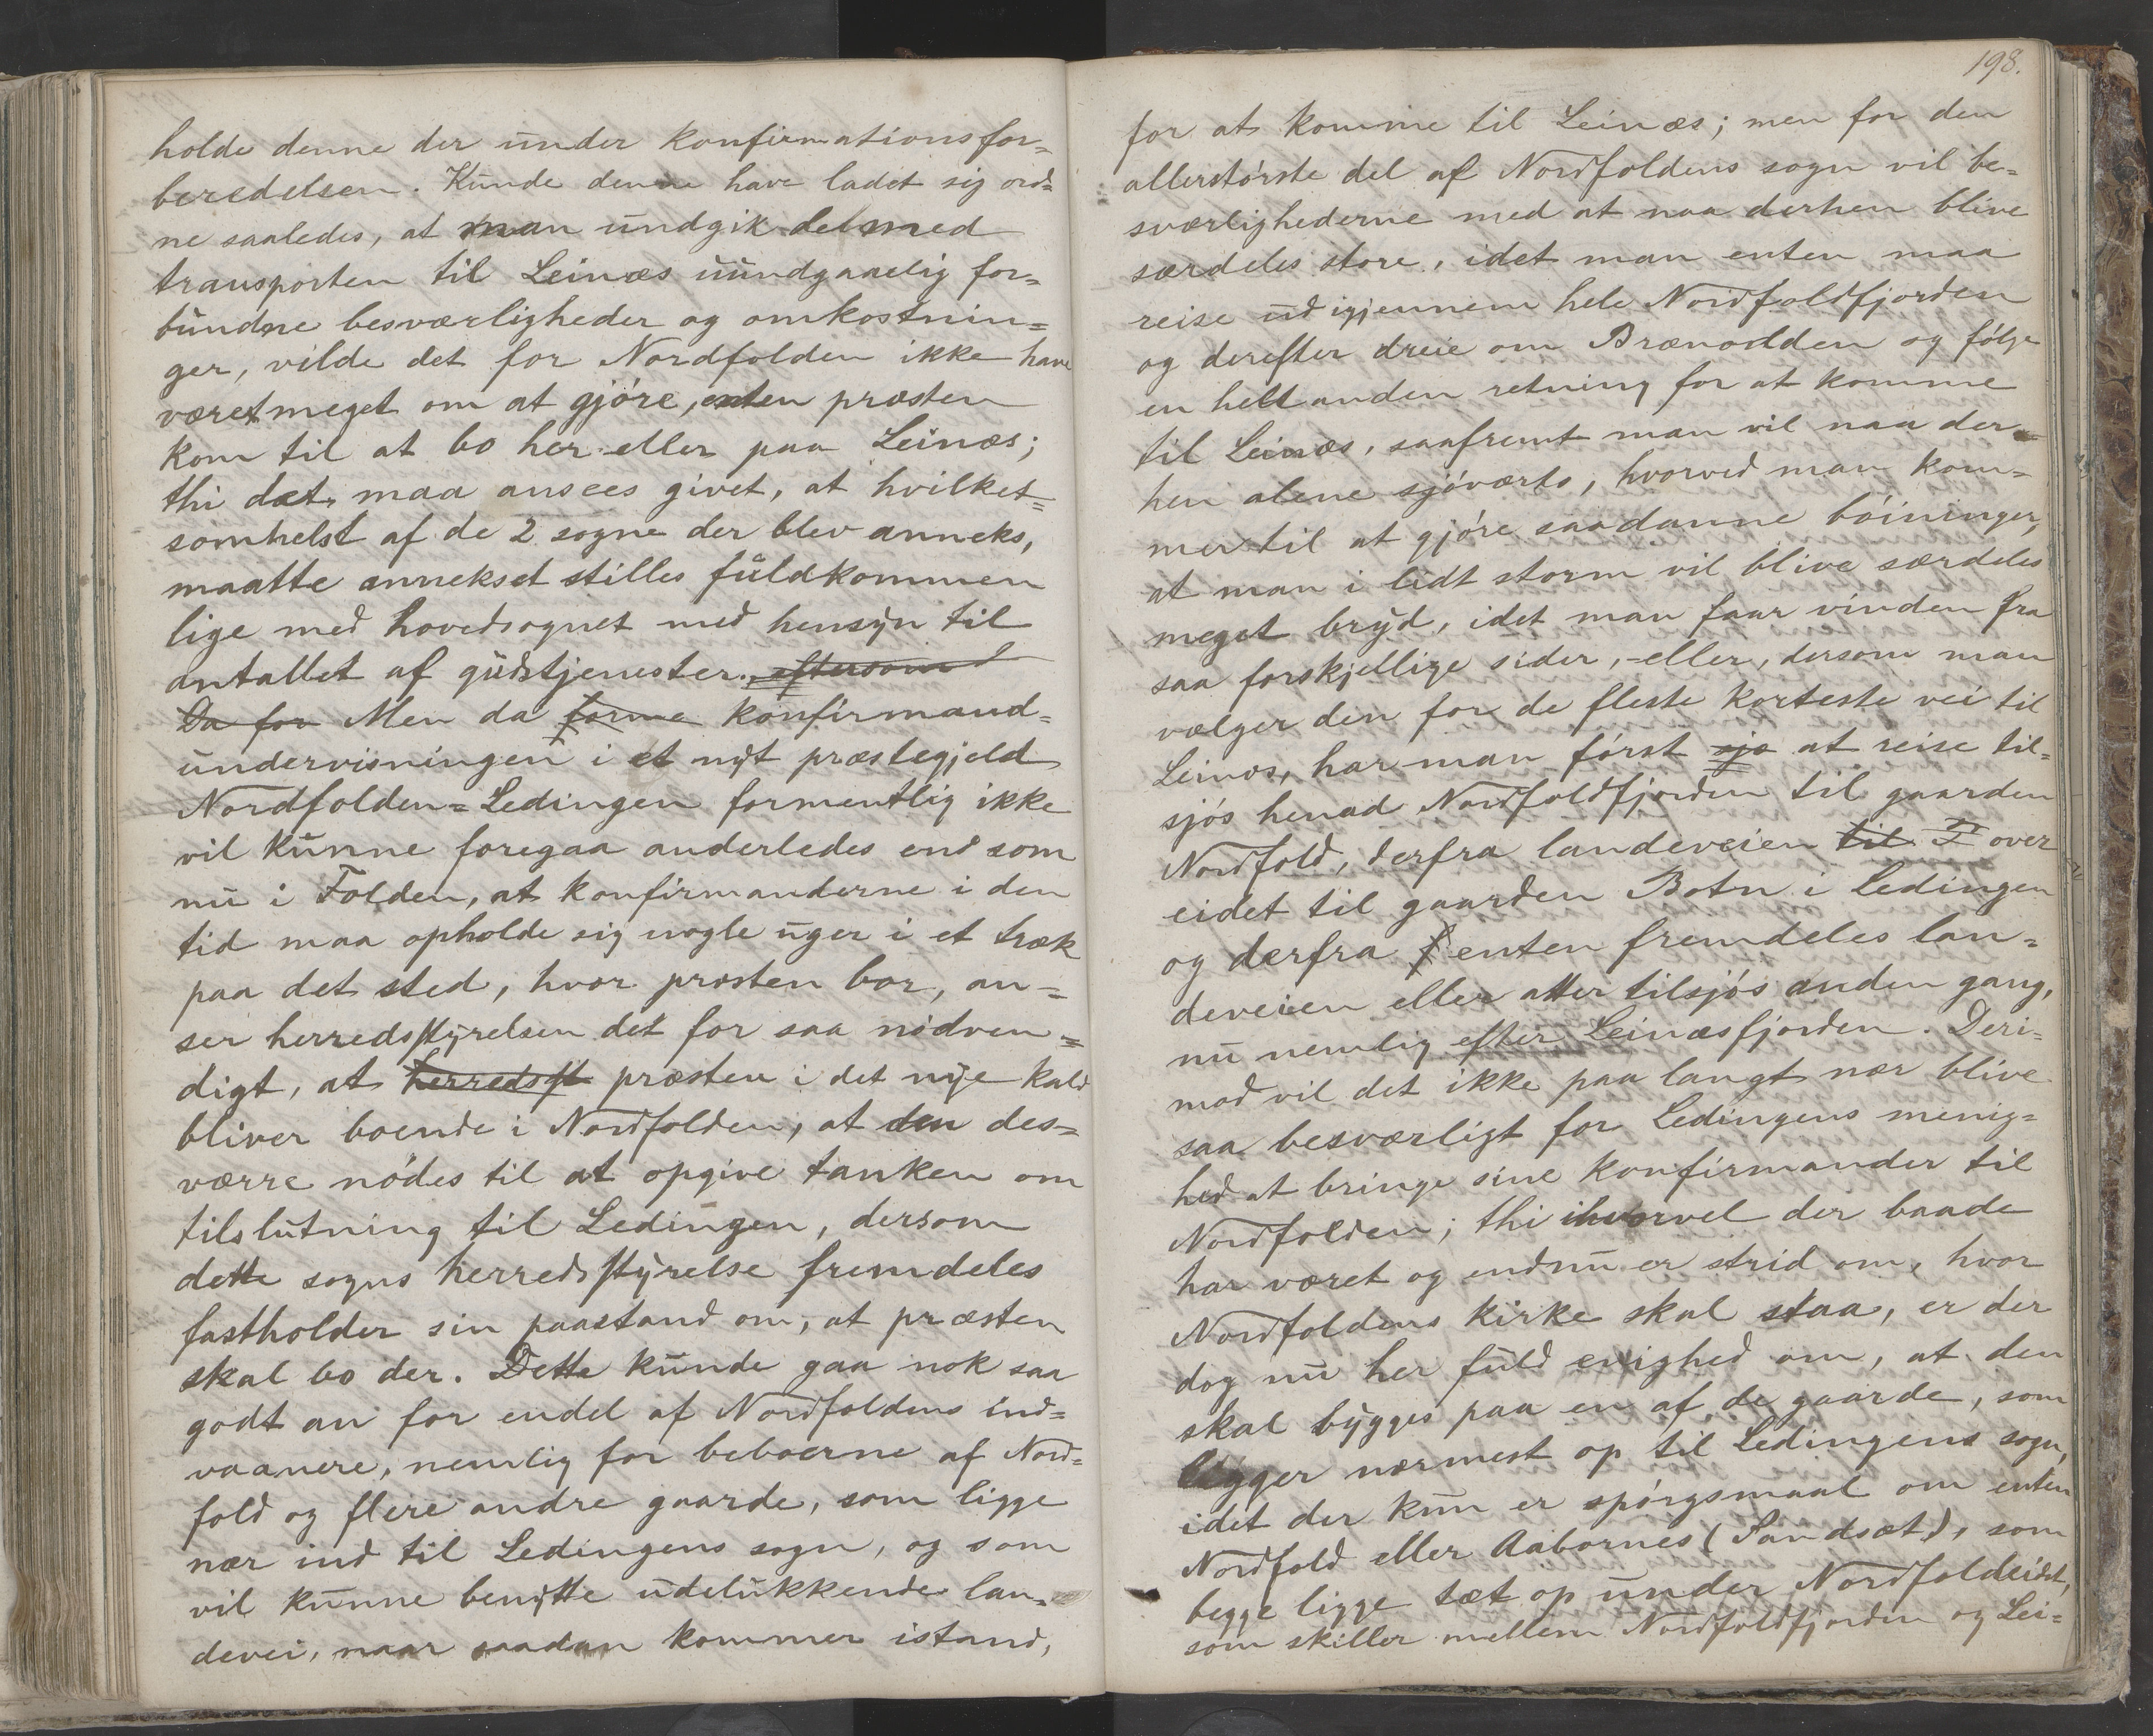 holde denne der under konfirmationsfor=
beredelsen. Kunde denne have ladet sig ord=
ne saaledes, at man undgik de med
transporten til Leinæs uundgaaelig for=
bundne besværligheder og omkostnin=
ger, vilde det for Nordfolden ikke have
været meget om at gjóre, enten præsten
kom til at bo her eller paa Leinæs;
thi det maa ansees givet, at hvilket=
somhelst af de 2 sogne der blev anneks,
maatte annekset stilles fuldkommen
lige med hovedsognet med hensyn til
antallet af gudstjenester. eftersom
Da for Men da forme konfirmand=
undervisningen i et nyt præstegjeld
Nordfolden=Ledingen formentlig ikke
vil kunne foregaa anderledes end som
nu i Folden, at konfirmanderne i den
tid maa opholde sig nogle uger i et træk
paa det sted, hvor præsten bor, an=
ser herredsstyrelsen det for saa nódven=
digt, at herredsst præsten i det nye kald
bliver boende i Nordfolden, at den des=
værre nódes til at opgive tanken om
tilslutning til Ledingen, dersom
dette sogns herredsstyrelse fremdeles
fastholder sin paastand om, at præsten
skal bo der. Dette kunde gaa nok saa
godt an for endel af Nordfoldens ind=
vaanere, nemlig for beboerne af Nord=
fold og flere andre gaarde, som ligge
nær ind til Ledingens sogn, og som
vil kunne benytte udelukkende lan=
devei, naar saadan kommer istand,
198.
for at komme til Leinæs; men for den
allerstórste del af Nordfoldens sogn vil be=
sværlighederne med at naa derhen blive
særdeles store, idet man enten maa
reise ud igjennem hele Nordfoldfjorden
og derefter dreie om Brænodden og fólge
en helt anden retning for at komme
til Leinæs, saafremt man vil naa der=
hen alene sjóværts, hvorved man kom=
mer til at gjóre saadanne bóininger,
at man i lidt storm vil blive særdeles
meget bryd, idet man faar vinden fra
saa forskjellige sider, - eller, dersom man
vælger den for de fleste korteste vei til
Leinæs, har man fórst sjo at reise til=
sjós henad Nordfoldfjorden til gaarden
Nordfold, derfra landeveien til F over
eidet til gaarden Botn i Ledingen
og derfra f enten fremdeles lan=
deveien eller atter tilsjós anden gang,
nu nemlig efter Leinæsfjorden. Deri=
mod vil det ikke paa langt nær blive
saa besværligt for Ledingens menig=
hed at bringe sine konfirmander til
Nordfolden; thi ihvorvel der baade
har været og endnu er strid om, hvor
Nordfoldens kirke skal staa, er der
dog nu her fuld enighed om, at den
skal bygges paa en af de gaarde, som
ligger nærmest op til Ledingens sogn,
idet der kun er spórgsmaal om enten
Nordfold eller Aabornes (Sandsæt), som
begge ligge tæt op under Nordfoldeidet,
som skiller mellem Nordfoldfjorden og Lei=